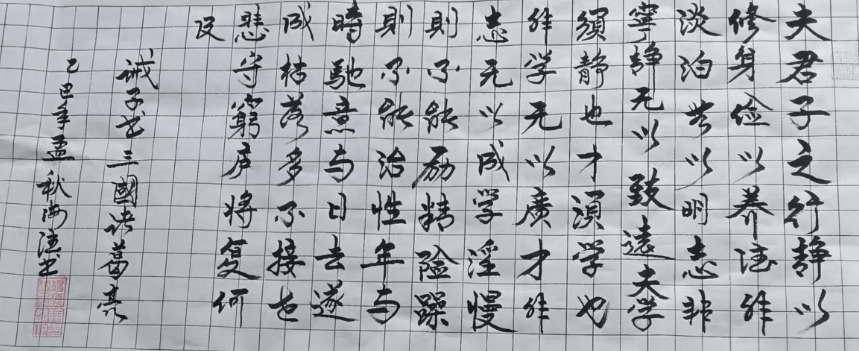 夫君子之行静以
修身俭以养德非
淡泊无以明志非
寧静无以致遠夫学
須静也才須学也
非学无以廣才非
志无以成学淫慢
則不能励精险躁
則不能治性年与
時馳意与日去遂
成枯落多不接世
悲守窮庐将复何
及
诫子书三國诸葛亮
乙巳年孟秋海书